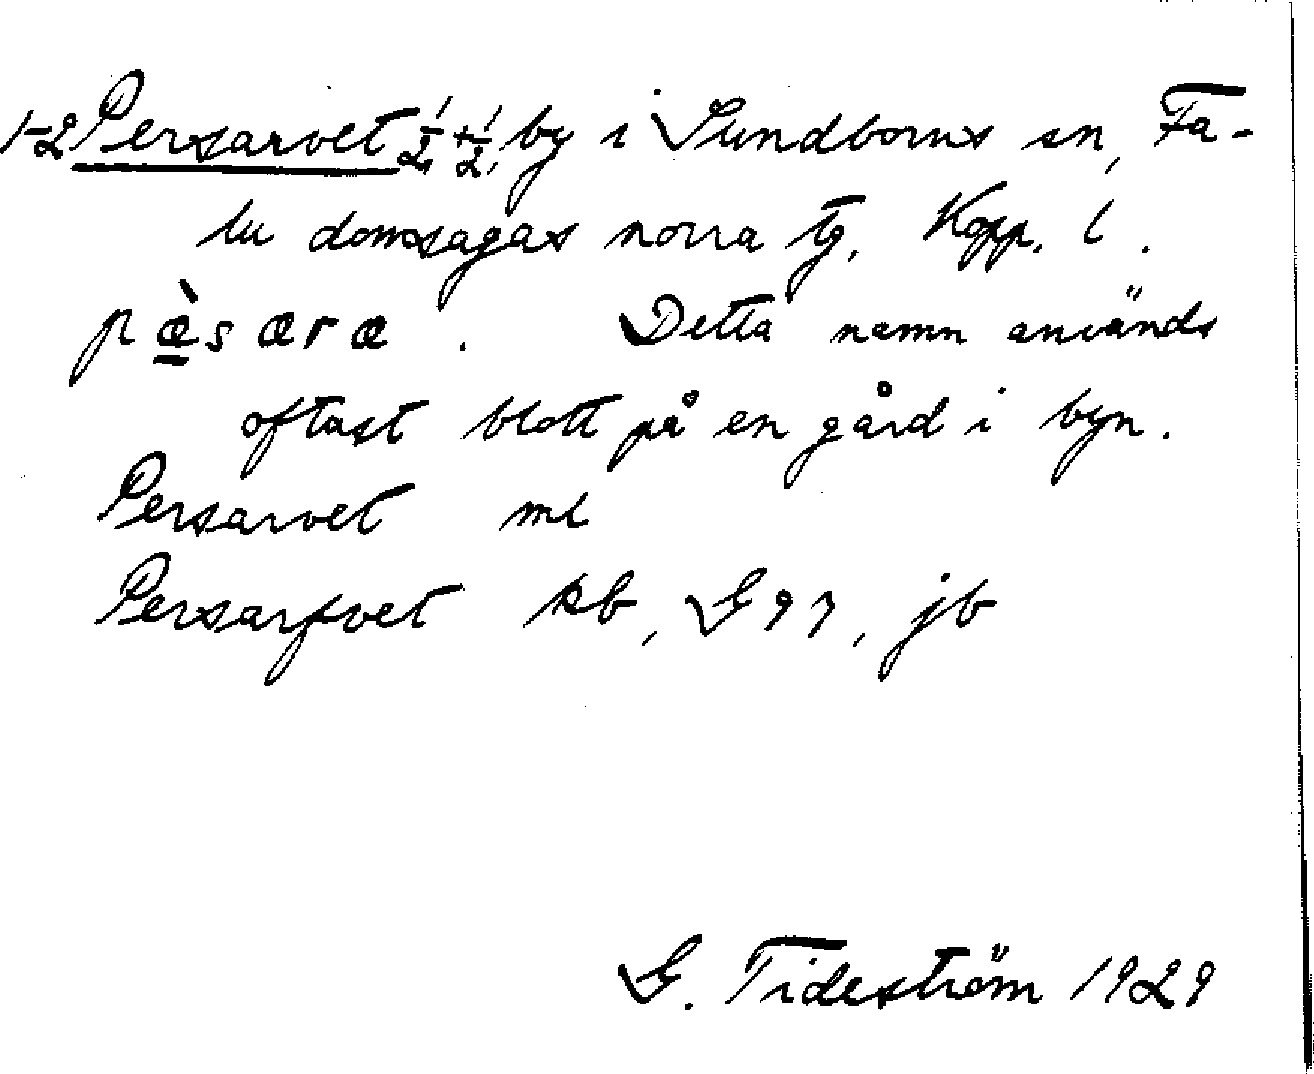 1-2 Persarvet ½ + ½, by i Sundborns sn, Fa-
lu domsagas norra tg, Kopp. l.
pæ̀særæ. Detta namn används
oftast blott på en gård i byn.
Persarvet ml
Persarfvet kb, G 97, jb
G. Tideström 1929